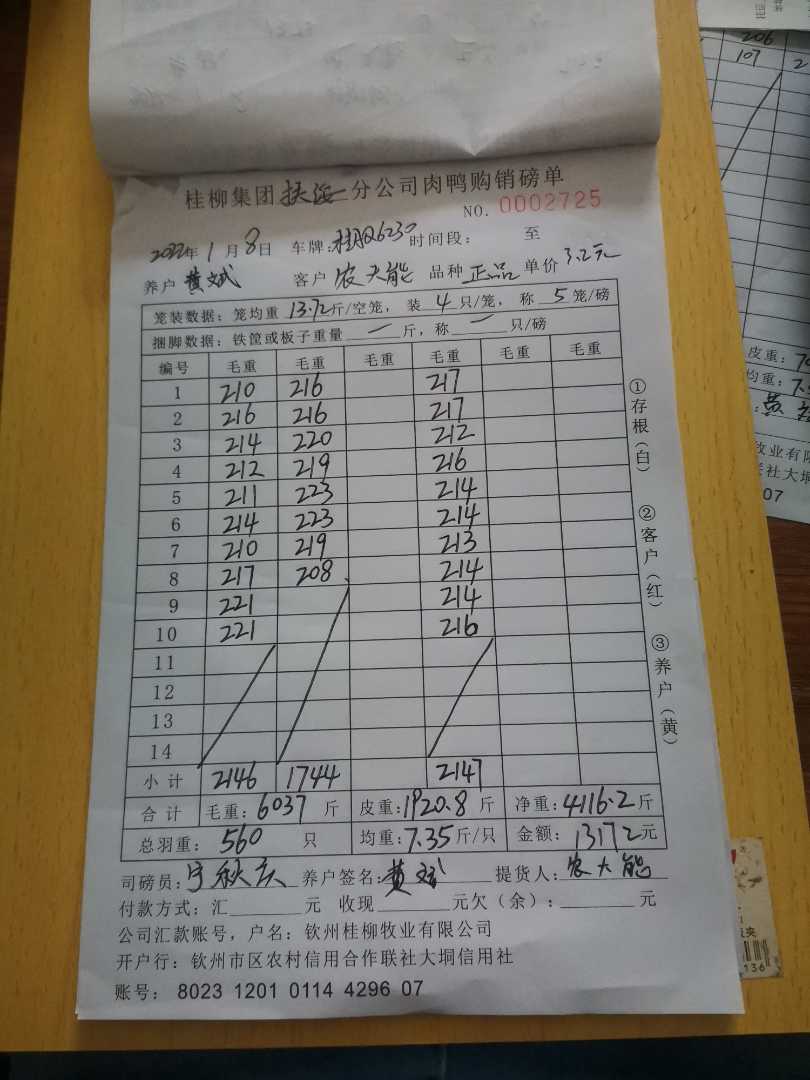 桂柳集团扶浜分公司肉鸭购销磅单
NO. 0002725
2022年1月8日 车牌: 桂AQ6230 时间段: 至
养户 黄斌 客户 农大能 品种 正品 单价 3.2元
笼装数据: 笼均重 13.72斤/空笼, 装 4 只/笼, 称 5 笼/磅
捆脚数据: 铁筐或板子重量 一 斤, 称 一 只/磅
编号 毛重 毛重 毛重 毛重 毛重 毛重
1 210 216 217
2 216 216 217
3 214 220 212
4 212 219 216
5 211 223 214
6 214 223 214
7 210 219 213
8 217 208 214
9 221 214
10 221 216
11
12
13
14
小计 2146 1744 2147
合计 毛重: 6037 斤 皮重: 1920.8 斤 净重: 4116.2 斤
总羽重: 560 只 均重: 7.35 斤/只 金额: 13172 元
司磅员: 宁秋庆 养户签名: 黄斌 提货人: 农大能
付款方式: 汇 元 收现 元欠(余): 元
公司汇款账号, 户名: 钦州桂柳牧业有限公司
开户行: 钦州市区农村信用合作联社大垌信用社
账号: 8023 1201 0114 4296 07
①存根(白)
②客户(红)
③养户(黄)
206
107
2
皮重: 7
均重: 7.
黄
牧业有限
联社大垌
07
136